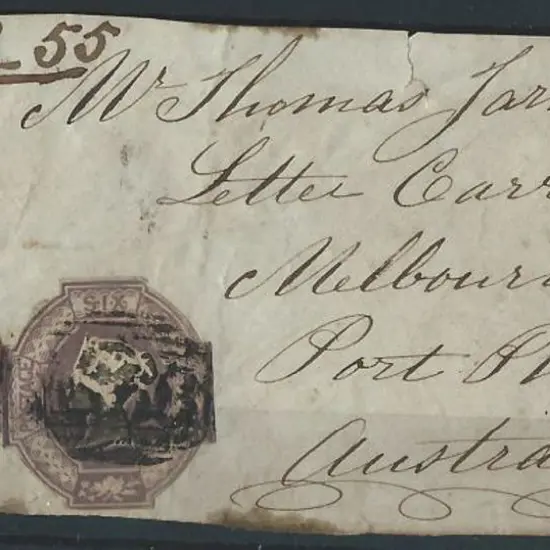 55
Mr Thomas Jar
Letter Carr
Melbourn
Port P
Austra
SIX
POSTAGE